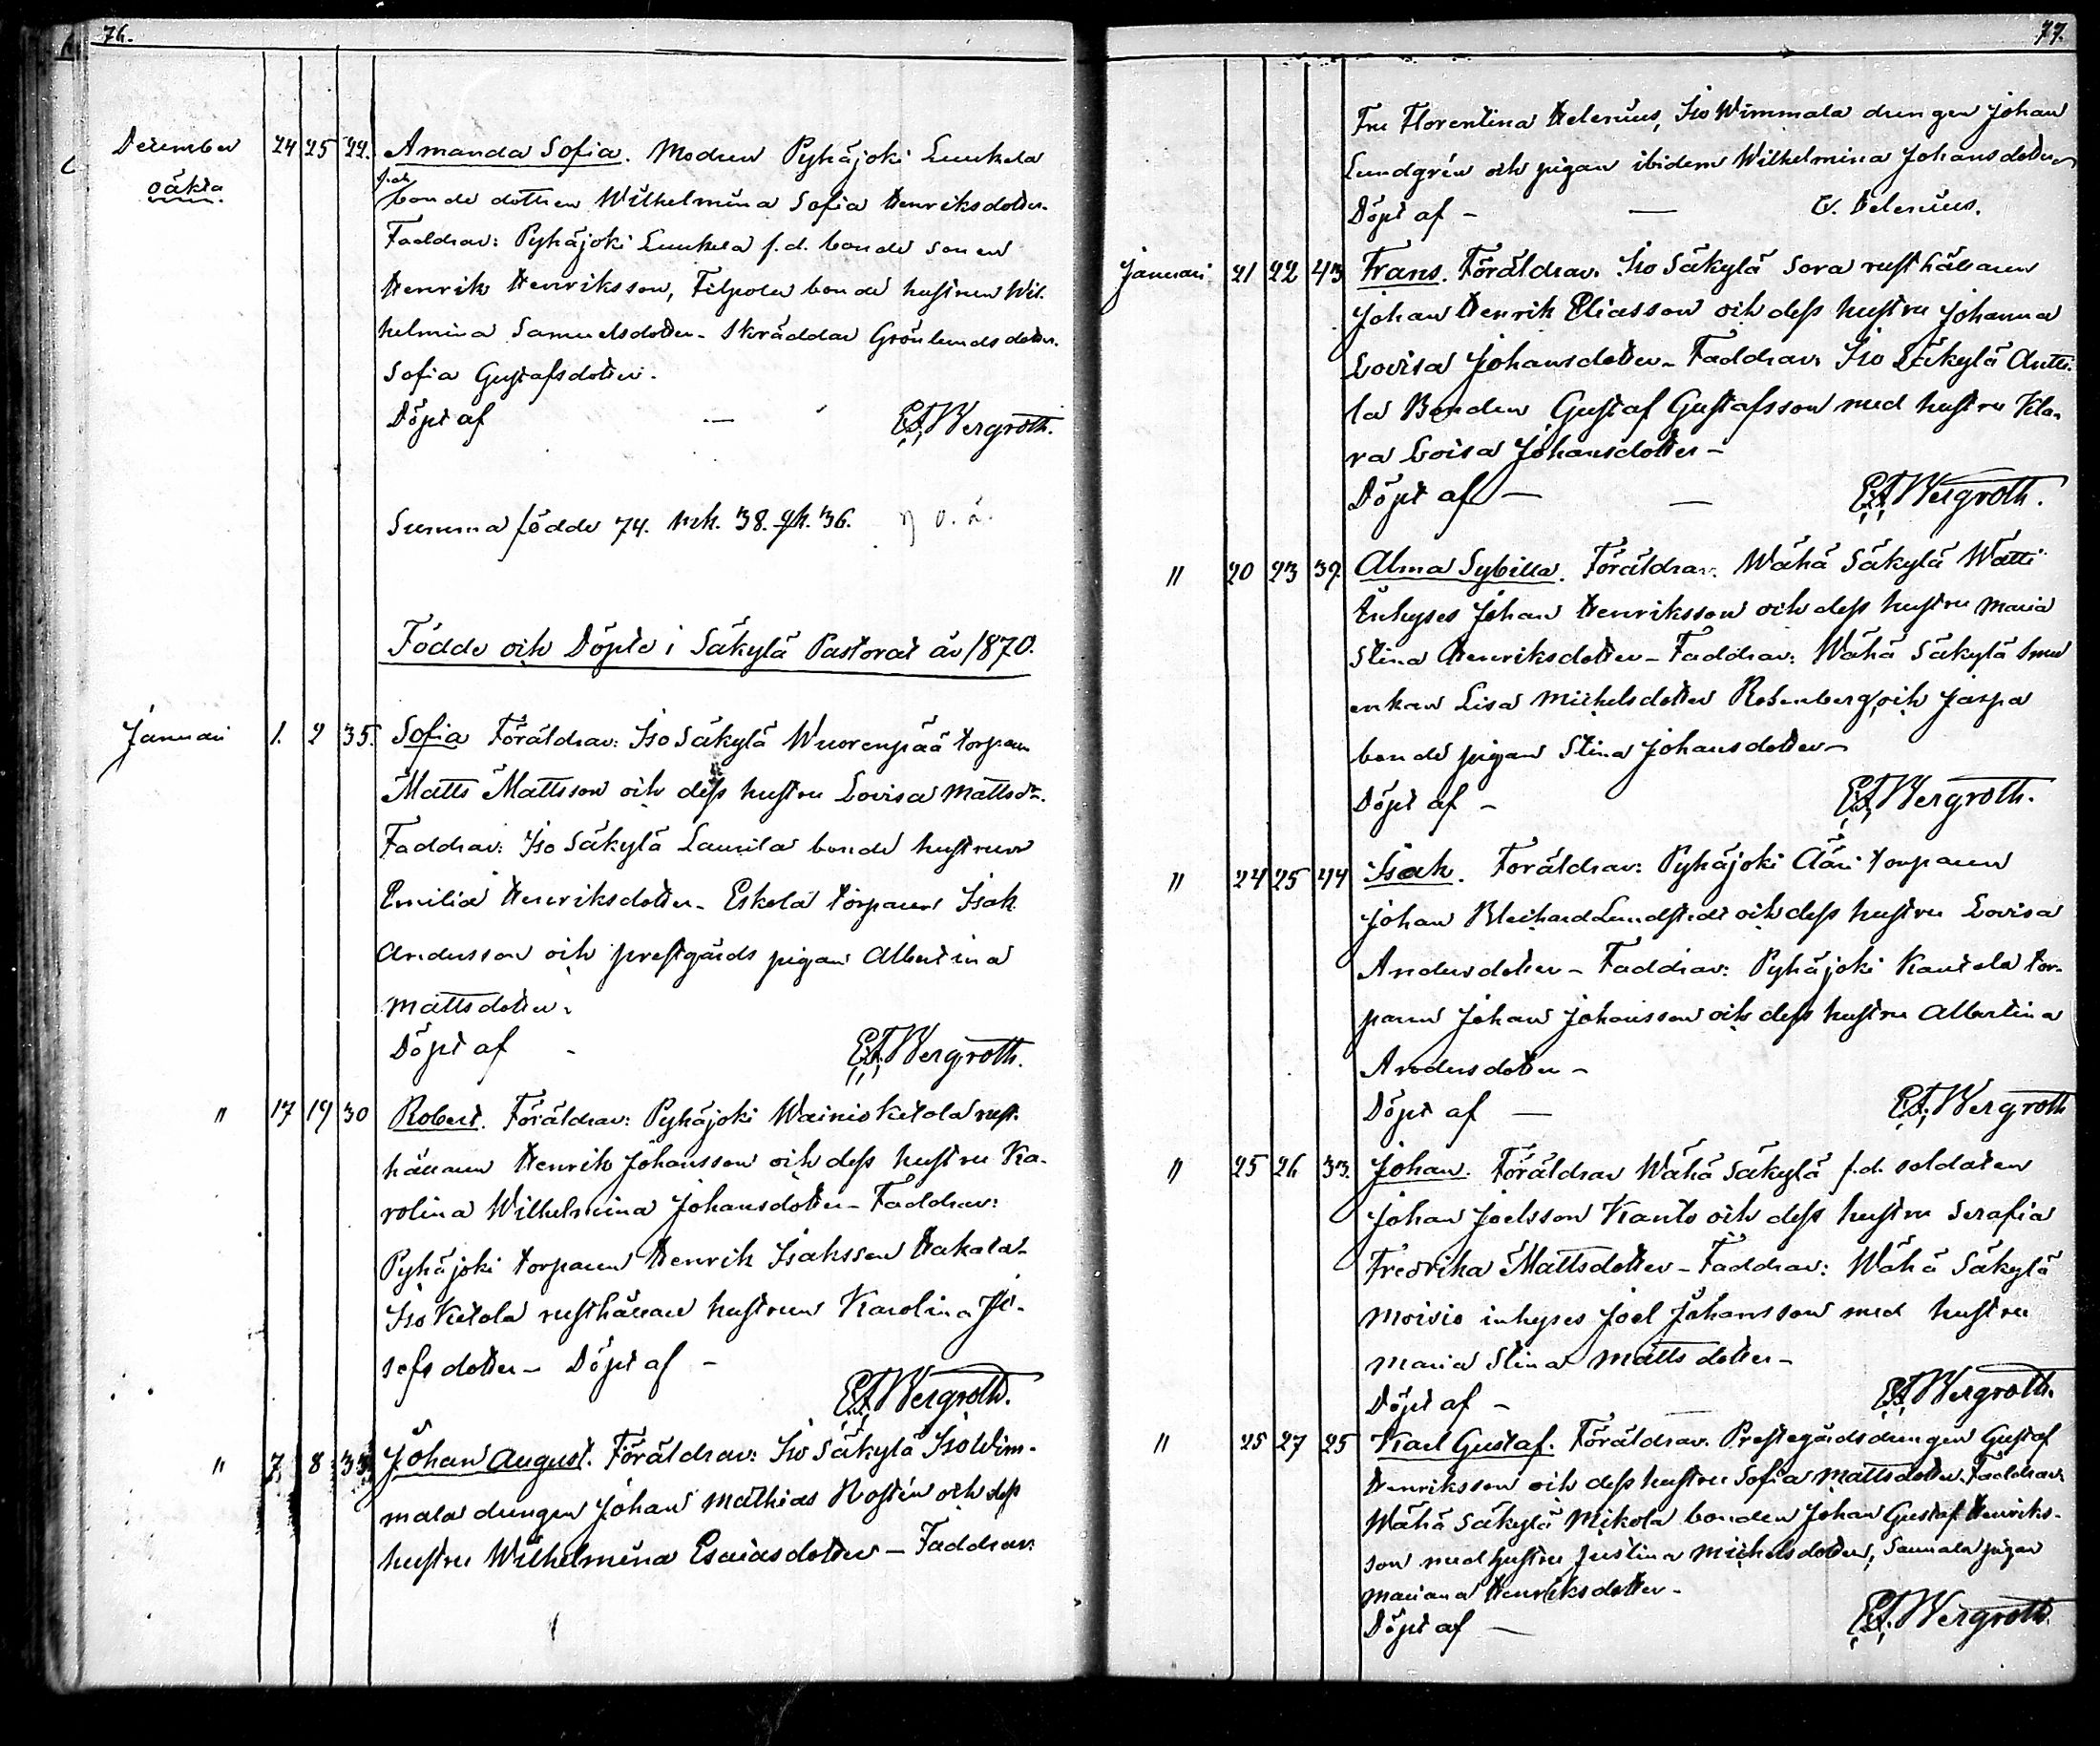 76.
December 24 25 22. Amanda Sofia. Modren Pyhäjoki Luukela
oäkta f.d. bonde dottren Wilhelmina Sofia Henriksdotter.
Faddrar: Pyhäjoki Luukela f.d. bonde sonen
Henrik Henriksson, Filpola bonde hustrun Wil-
helmina Samuelsdotter - Skräddar Grönlunds dotter.
Sofia Gustafsdotter.
Döpt af — E.F. Bergroth.
Summa födde 74. mk. 38. qk. 36. 7 o. ä.
Födde och Döpte i Säkylä Pastorat år 1870.
Januari 1. 2 35. Sofia Föräldrar: Iso Säkylä Wuorenpää torparn
Matts Mattsson och dess hustru Lovisa Mattsdr.
Faddrar: Iso Säkylä Laurila bonde hustrun
Emilia Henriksdotter - Eskola torparn Isak
Andersson och prestgårds pigan Albertina
Mattsdotter.
Döpt af - E.F. Bergroth.
" 17 19 30 Robert. Föräldrar: Pyhäjoki Wainio Ketola rust-
hållaren Henrik Johansson och dess hustru Ka-
rolina Wilhelmina Johansdotter - Faddrar:
Pyhäjoki torparen Henrik Isaksson Hakala -
Iso Ketola rusthållare hustrun Karolina Jo-
sefsdotter - Döpt af -
E.F. Bergroth.
" 7. 8 33. Johan August. Föräldrar: Iso Säkylä Iso Wim-
mala drengen Johan Mathias Rostén och dess
hustru Wilhelmina Esaiasdotter - Faddrar:
77.
Fru Florentina Helenius, Iso Wimmala drengen Johan
Lundgrén och pigan ibidem Wilhelmina Johansdotter
Döpt af - — Helenius.
Januari 21 22 43 Frans. Föräldrar. Iso Säkylä Sora rusthållaren
Johan Henrik Eliasson och dess hustru Johanna
Lovisa Johansdotter - Faddrar. Iso Säkylä Antti-
la Bonden Gustaf Gustafsson med hustru Kla-
ra Loisa Johansdotter -
Döpt af — — E.F. Bergroth.
" 20 23 39. Alma Sybilla. Föräldrar. Wähä Säkylä Watti
Inhyses Johan Henriksson och dess hustru Maria
Stina Henriksdotter - Faddrar: Wähä Säkylä
enkan Lisa Michelsdotter Rosenberg, och Jaspa
bonde pigan Stina Johansdotter -
Döpt af - E.F. Bergroth.
" 24 25 44 Isak. Foräldrar: Pyhäjoki Ääri torparen
Johan Lundstedt och dess hustru Lovisa
Andersdotter - Faddrar: Pyhäjoki Kantola tor-
paren Johan Johansson och dess hustru Albertina
Andersdotter -
Döpt af — E.F. Bergroth
" 25 26 33. Johan. Föräldrar Wähä Säkylä f.d. soldaten
Johan Joelsson Kanto och dess hustru Serafia
Fredrika Mattsdotter - Faddrar: Wähä Säkylä
Moisio inhyses Joel Johansson med hustru
Maria Stina Matts dotter -
Döpt af - E.F. Bergroth.
" 25 27 25 Karl Gustaf. Föräldrar. Prestegårdsdrengen Gustaf
Henriksson och dess hustru Sofia Mattsdotter. Faddrar.
Wähä Säkylä Mikola bonden Johan Gustaf Henriks-
son med hustru Justina Michelsdotter, Sannala pigan
Mariana Henriksdotter -
Döpt af — E.F. Bergroth.